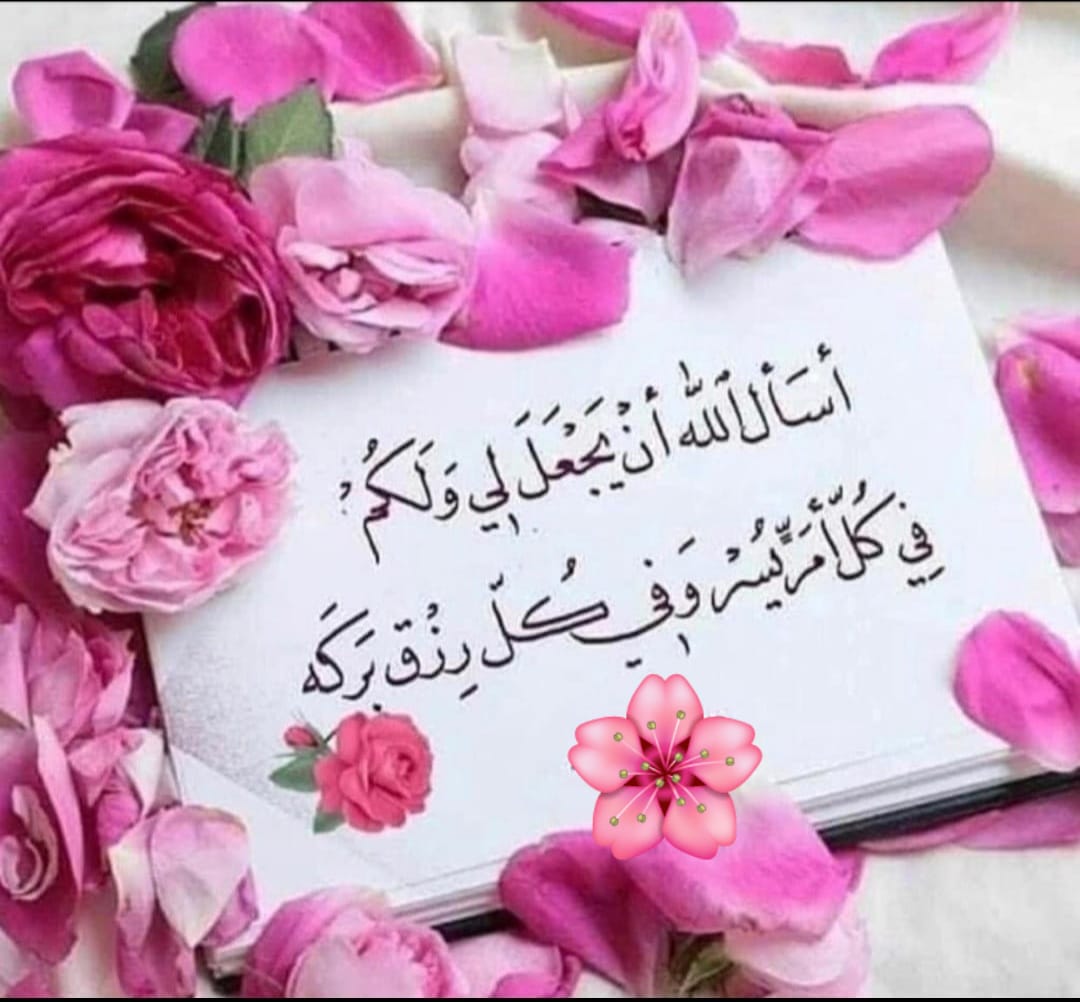 أسَألُ ٱللّٰه أنْ يَجْعَلَ لِي وَلَكُمْ
فِي كُلّ أمَرٍّ يُسْر وَفي كُلّ رِزْق بَركَه